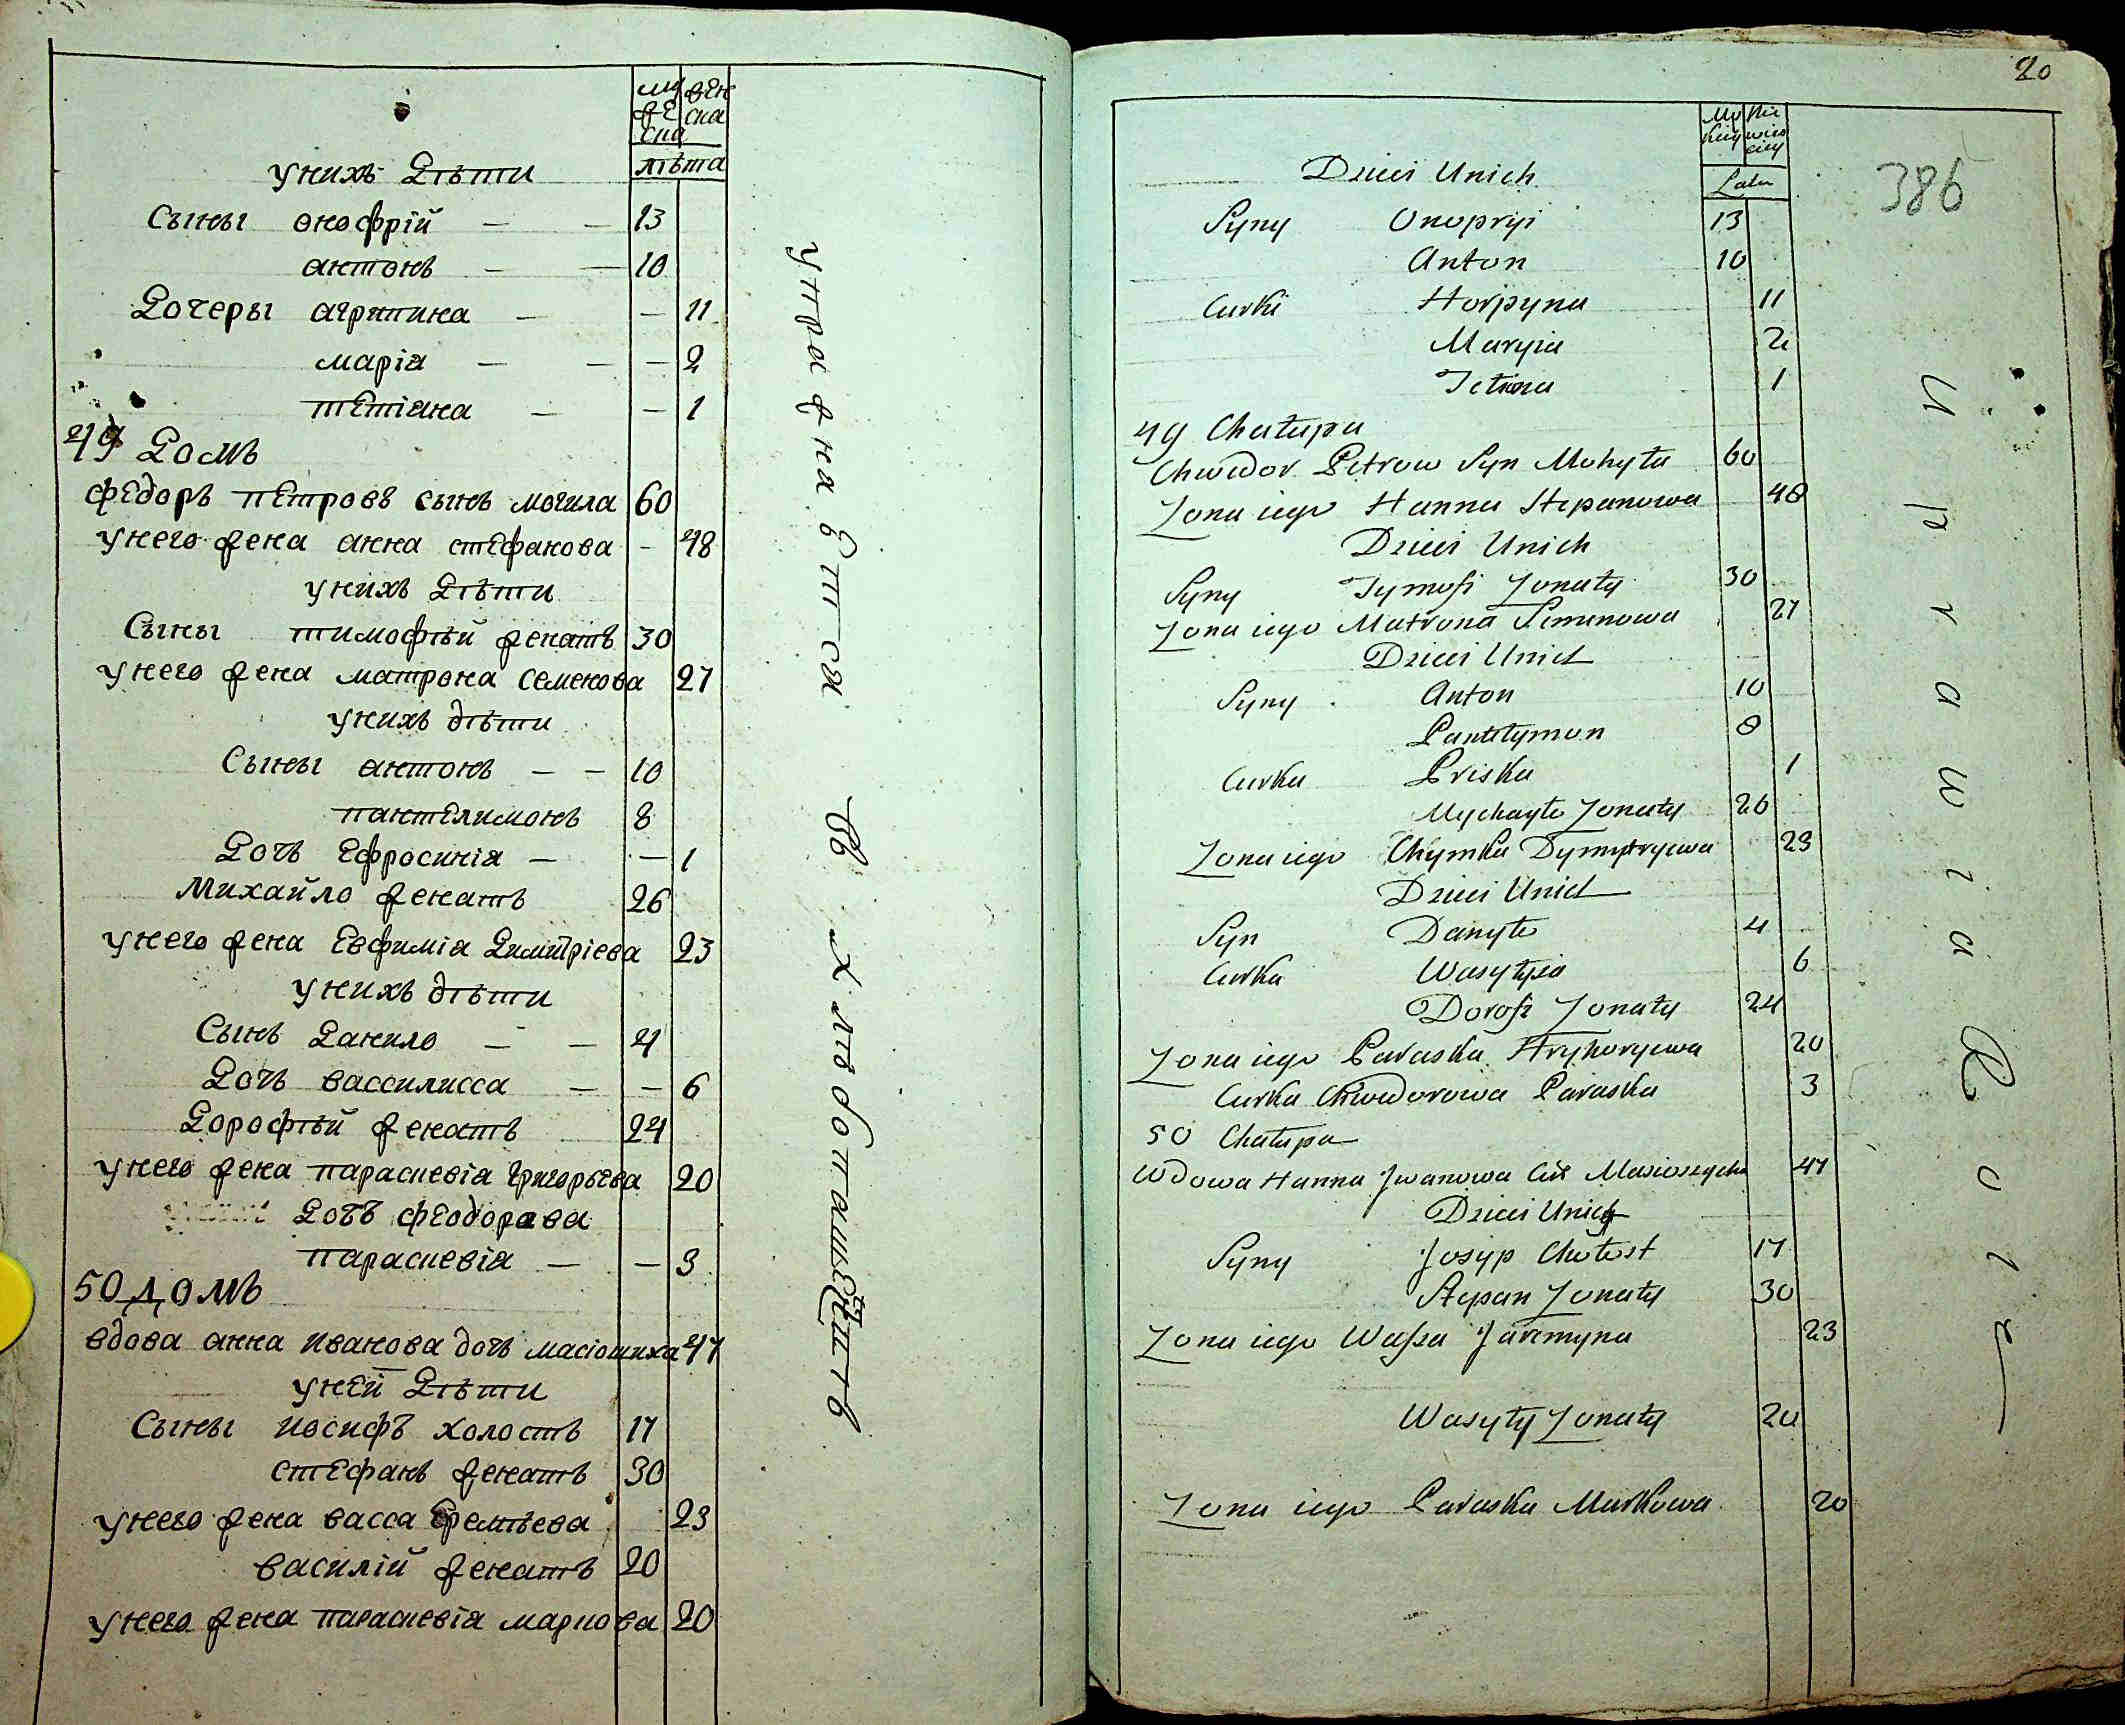 му жен
же ска
ска
лѣта
у нихъ дѣти
Сыны онофрій — — 13
антонъ — — 10
Дочеры агрипина — — 11
марія — — — 2
тетіана — — 1
49 Домъ
федоръ петровъ сынъ могила 60
у него жена анна стефанова - 48
у нихъ дѣти
Сыны тимофѣй женатъ 30
у него жена матрона семенова 27
у нихъ дѣти
Сыны антонъ — — 10
пантелимонъ 8
Дочъ Ефросинія — — 1
Михайло женатъ 26
у него жена Евфимія Димитріева 23
у нихъ дѣти
Сынъ Данило — — 4
Дочъ вассилисса — — 6
Дорофѣй женатъ 24
у него жена параскевіа григорьева 20
Дочъ феодорава
параскевіа — — 3
50 домъ
вдова анна иванова дочъ масіошиха 47
у ней дѣти
Сыны иосифъ холостъ 17
стефанъ женатъ 30
у него жена васса Еремѣева 23
василій женатъ 20
у него жена параскевіа маркова 20
упражнаются
въ хлѣбопашествѣ
20
386
Mu Nie
skiey wies
ciey
Latu
Dzieci Unich
Syny Onopryi 13
Anton 10
Curki Horpyna 11
Maryia 2
Tetiana 1
49 Chatupa
Chwedor Petrow Syn Mohyta 60
Zona iego Hanna Stepanowa 48
Dzieci Unich
Syny Tymofi Zonaty 30
Zona iego Matrona Semenowa 27
Dzieci Unich
Syny Anton 10
Pantetymon 8
Curka Priska 1
Mychayto Zonaty 26
Zona iego Chymka Dymytryewa 23
Dzieci Unich
Syn Danyto 4
Curka Wasytysa 6
Dorofi Zonaty 24
Zona iego Paraska Hryhoryewa 20
Curka Chwedorowa Paraska 3
50 Chatupa
Wdowa Hanna Jwanowa Masioszycha 47
Dzieci Unich
Syny Josyp Chotost 17
Stepan Zonaty 30
Zona iego Wassa Jaremyna 23
Wasyty Zonaty 20
Zona iego Paraska Markowa 20
Uprawia Rolę